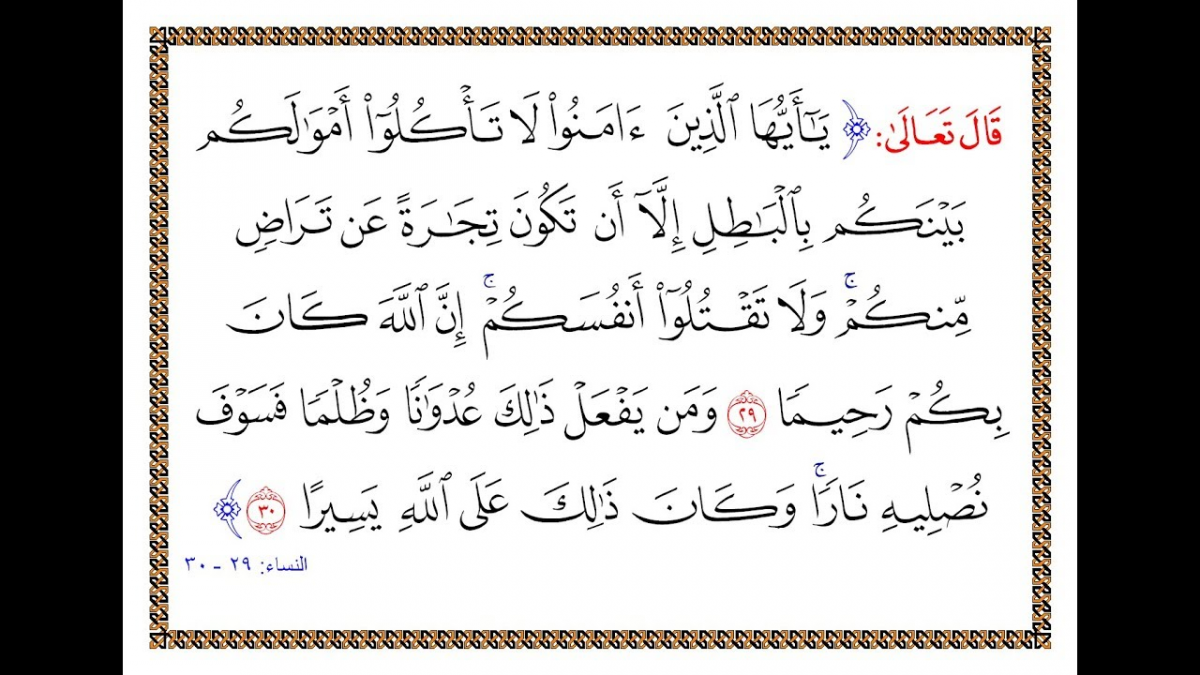 قَالَ تَعَالَىٰ: ﴿ يَـٰٓأَيُّهَا ٱلَّذِينَ ءَامَنُوا۟ لَا تَأۡكُلُوٓا۟ أَمۡوَٰلَكُم
بَيۡنَكُم بِٱلۡبَـٰطِلِ إِلَّآ أَن تَكُونَ تِجَـٰرَةً عَن تَرَاضٍ
مِّنكُمۡۚ وَلَا تَقۡتُلُوٓا۟ أَنفُسَكُمۡۚ إِنَّ ٱللَّهَ كَانَ
بِكُمۡ رَحِيمًا ٢٩ وَمَن يَفۡعَلۡ ذَٰلِكَ عُدۡوَٰنًا وَظُلۡمًا فَسَوۡفَ
نُصۡلِيهِ نَارًاۚ وَكَانَ ذَٰلِكَ عَلَى ٱللَّهِ يَسِيرًا ٣٠ ﴾
النساء: ٢٩ - ٣٠